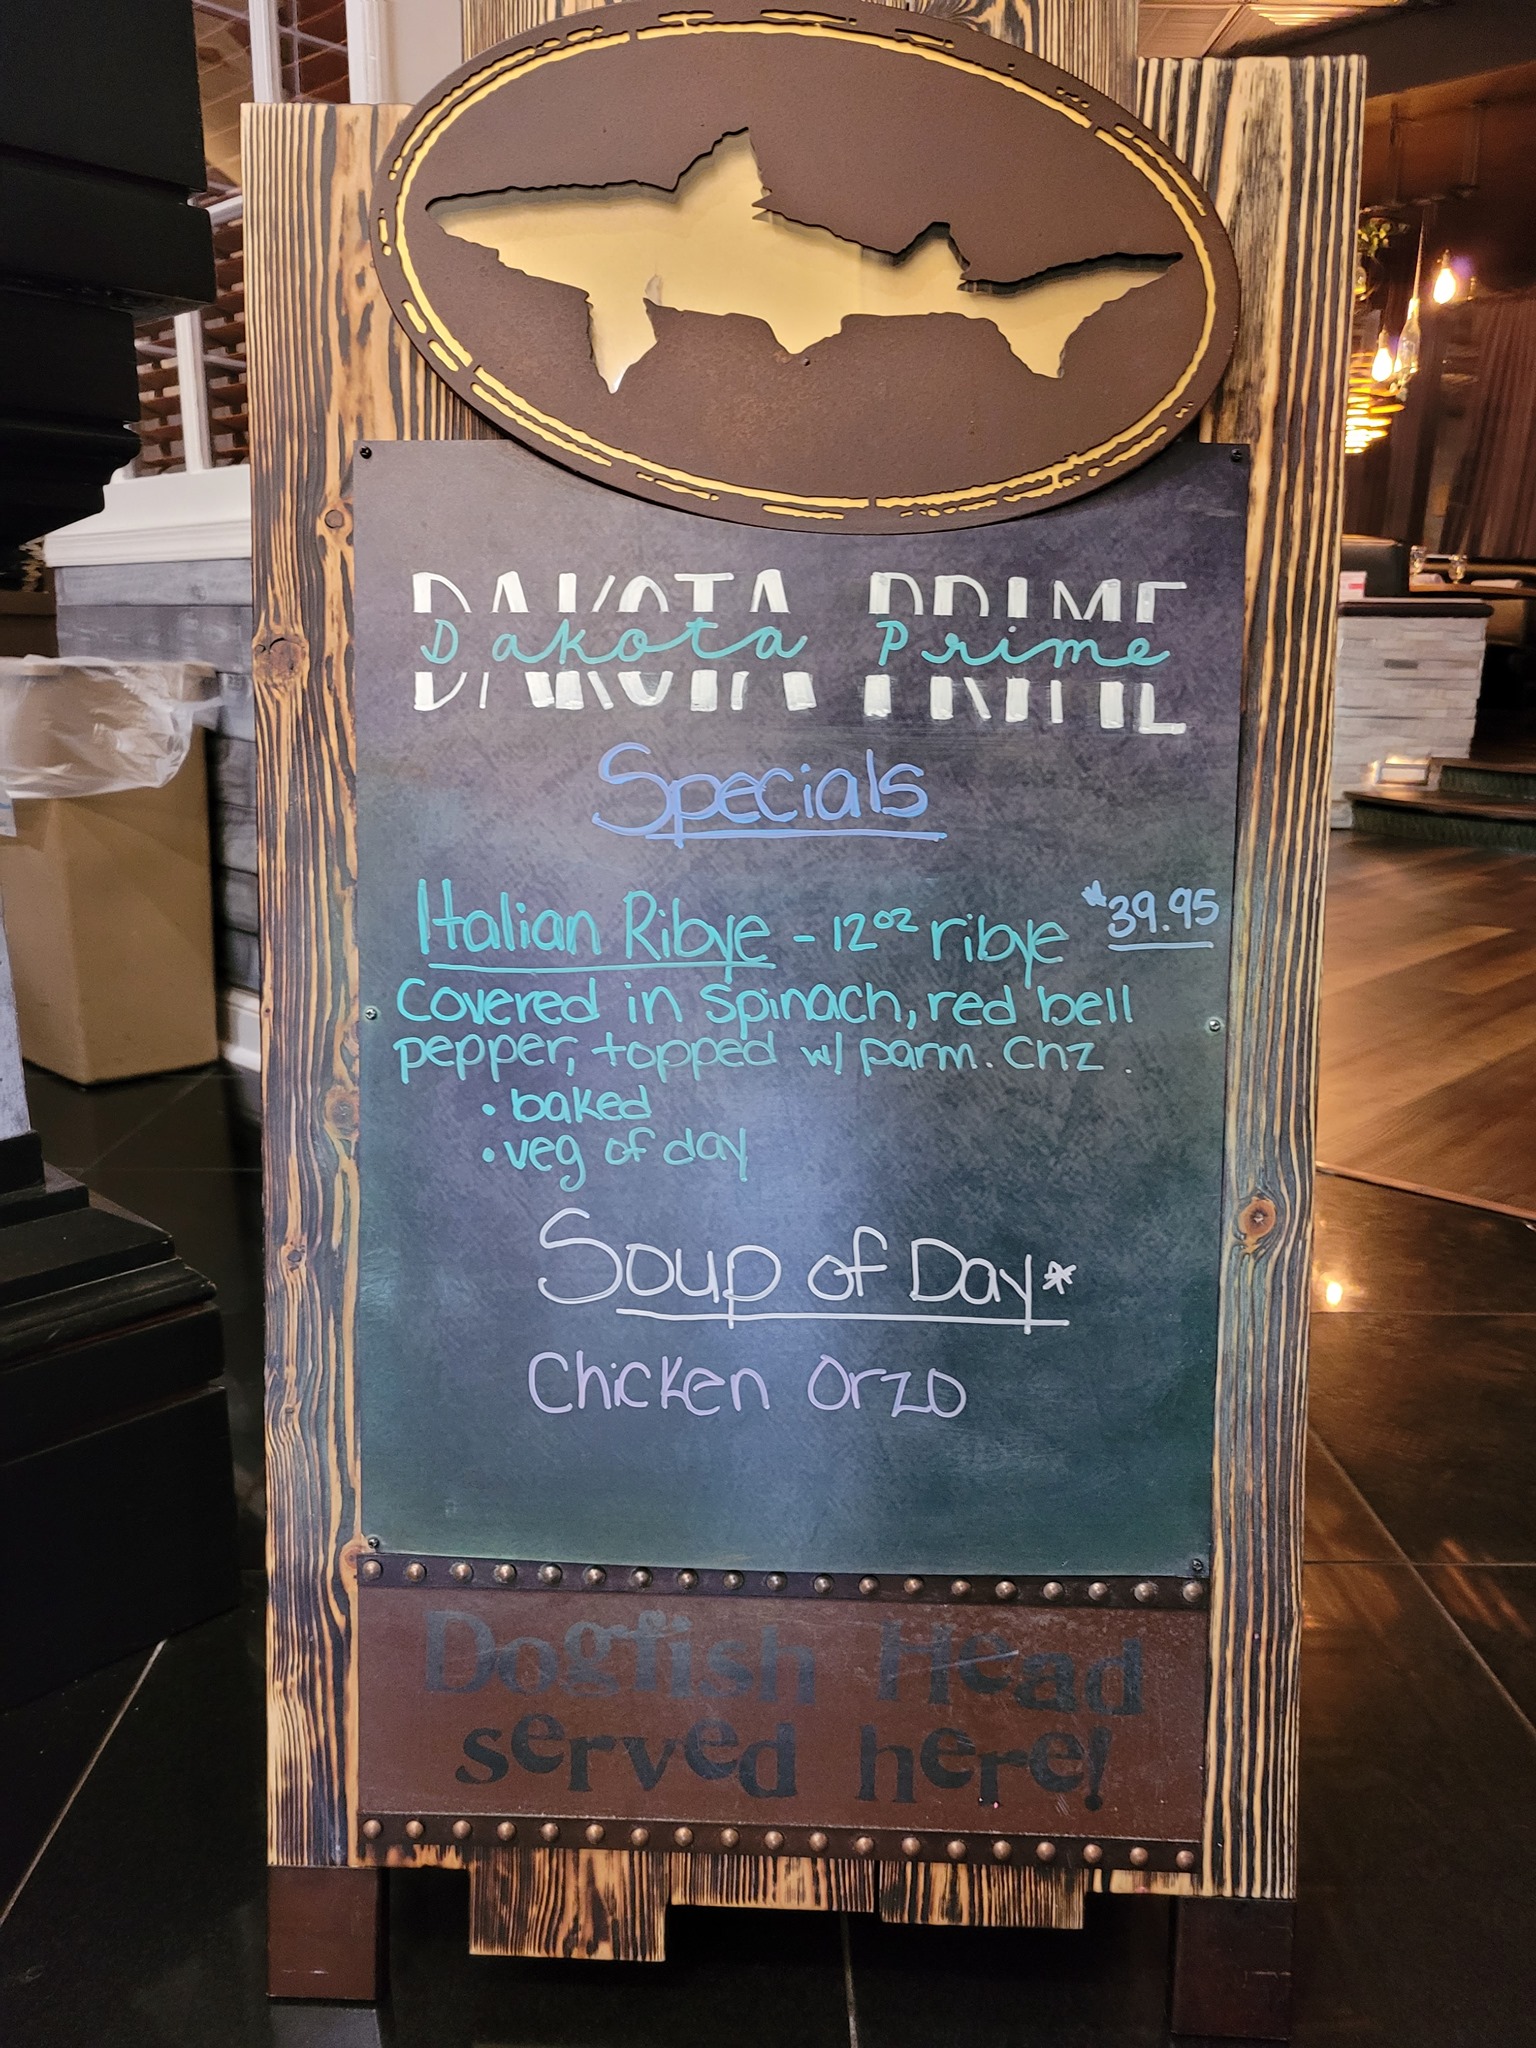 DAKOTA PRIME
Dakota Prime
Specials
Italian Ribye - 12oz ribye *39.95
Covered in spinach, red bell
pepper, topped w/ parm. chz.
• baked
• veg of day
Soup of Day*
Chicken Orzo
Dogfish Head
served here!